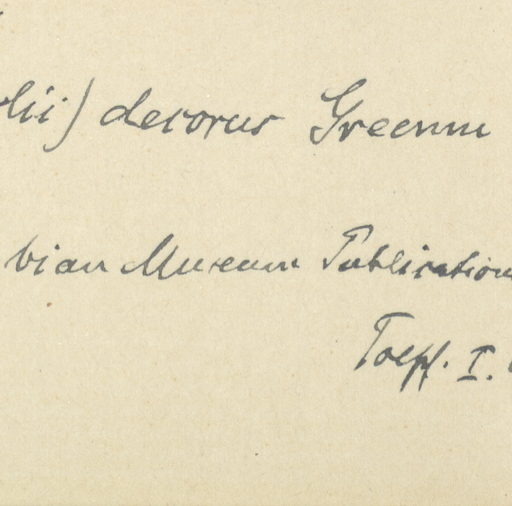 lii) decorus Greenm
bian Museum Publication
Toepf. I.